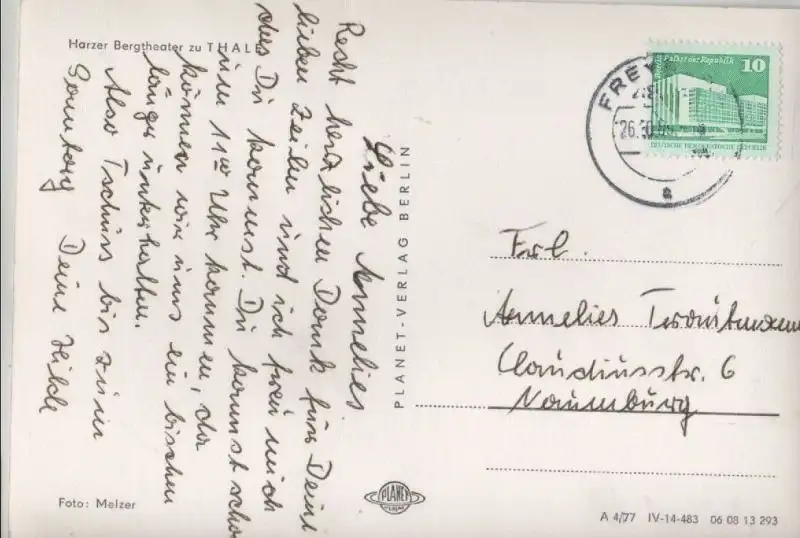 Harzer Bergtheater zu THALE
Liebe Annelies
Recht herzlichen Dank für Deine
lieben Zeilen und ich freu mich
das Du kommst. Du kannst schon
um 11 00 Uhr kommen, da
können wir uns ein bischen
länger unterhalten.
Also Tschüss bis zum
Sonntag Deine Hilde
Foto: Melzer
PLANET-VERLAG BERLIN
PLANET
VERLAG
FREY
26.10.
a
Berlin Palast der Republik
10
DEUTSCHE DEMOKRATISCHE REPUBLIK
Frl.
Annelies Trautmann
Claudiusstr. 6
Naumburg
A 4/77 IV-14-483 06 08 13 293